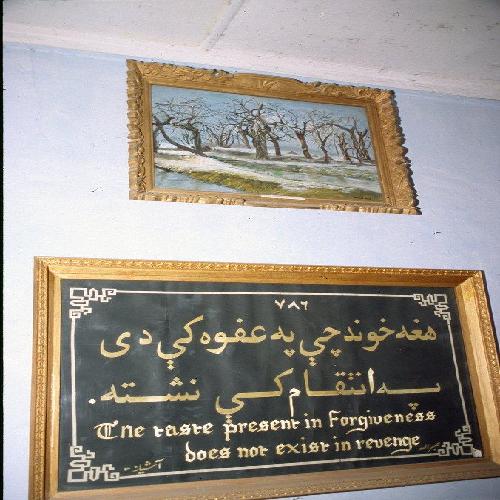 ٧٨٦
هغه خوند چې په عفوه کې دی
په انتقام کې نشته.
The taste present in Forgiveness
does not exist in revenge